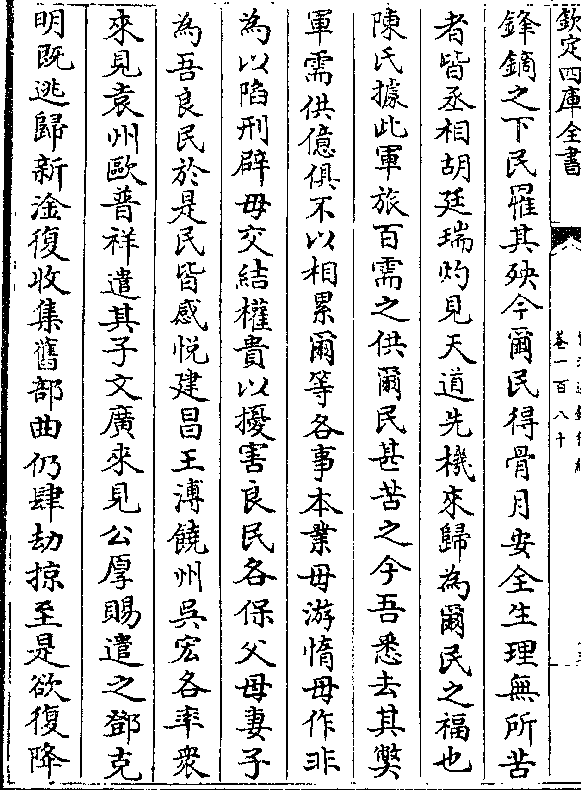 欽定四庫全書
卷一百八十
鋒鏑之下民罹其殃今爾民得骨月安全生理無所苦
者皆丞相胡廷瑞灼見天道先機來歸為爾民之福也
陳氏據此軍旅百需之供爾民甚苦之今吾悉去其獘
軍需供億俱不以相累爾等各事本業毋游惰毋作非
為以陷刑辟毋交結權貴以擾害良民各保父母妻子
為吾良民於是民皆感悅建昌王溥饒州吳宏各率衆
來見袁州歐普祥遣其子文廣來見公厚賜遣之鄧克
明既逃歸新淦復收集舊部曲仍肆劫掠至是欲復降